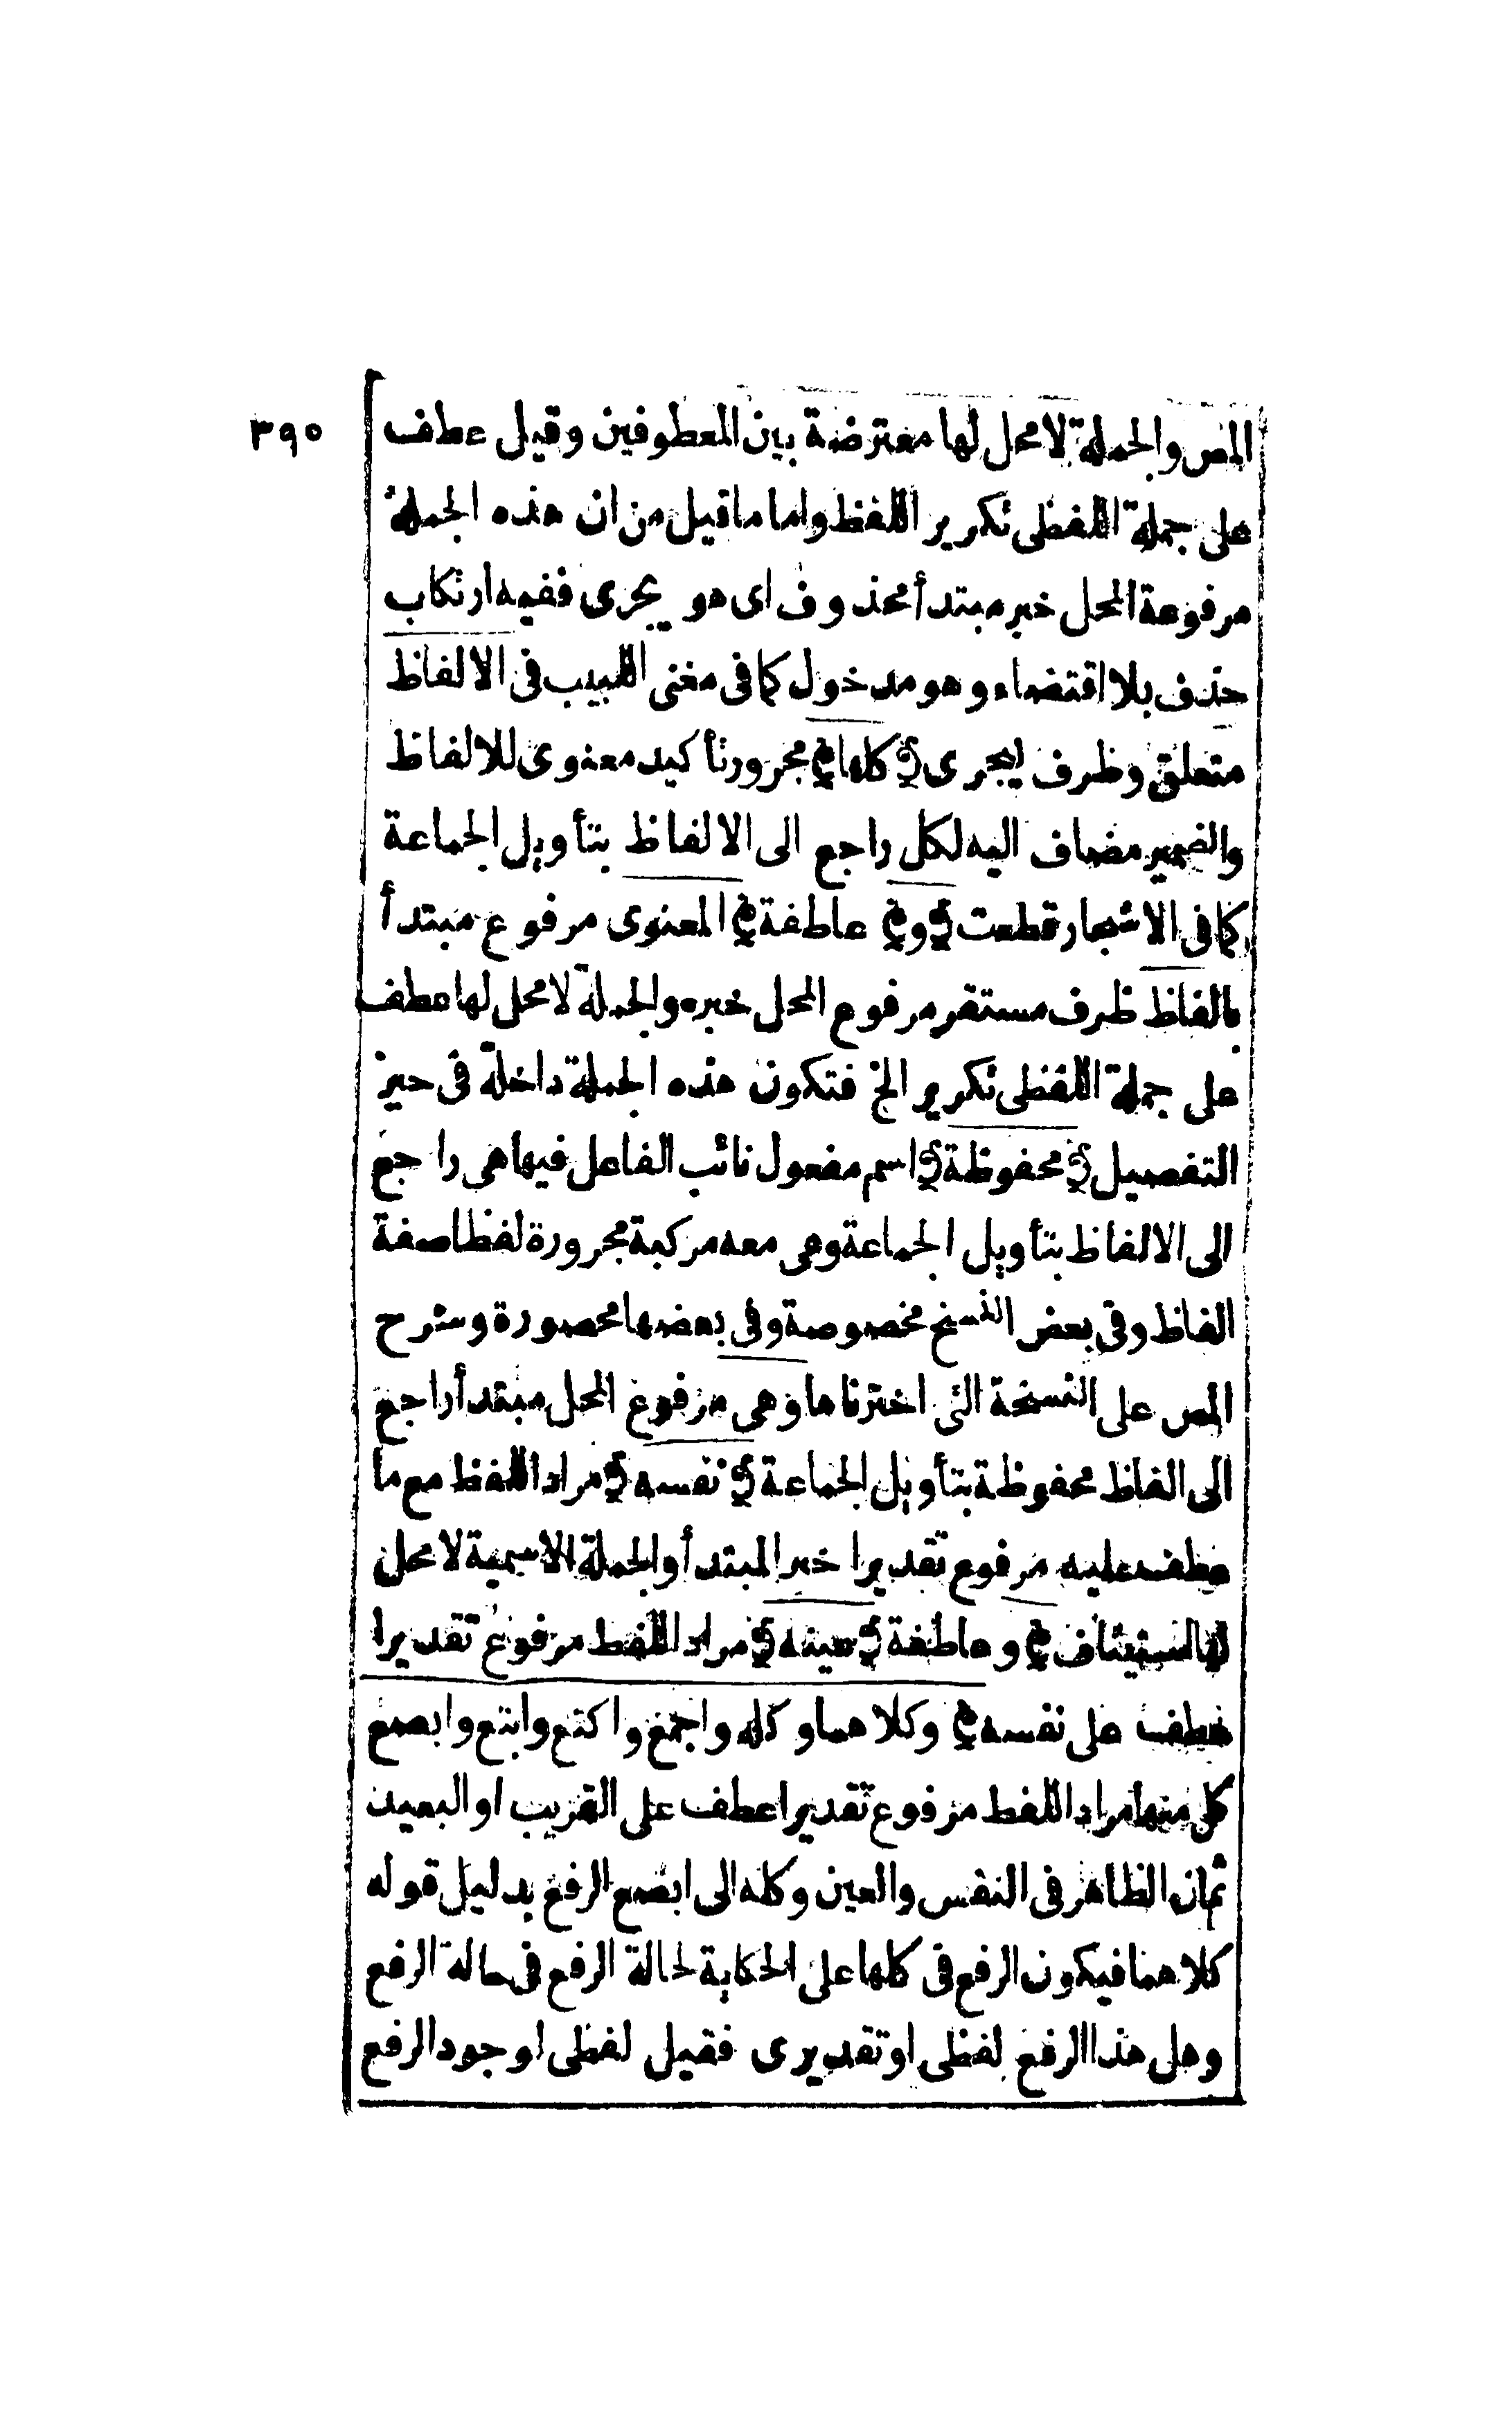 ٣٩٠
المص والجملة لا محل لها معترضة بين المعطوفين وقيل عطف
على جملة اللفظى تكرير اللفظ واما ما قيل من ان هذه الجملة
مرفوعة المحل خبر مبتدأ محذوف اى هو يجرى ففيه ارتكاب
حذف بلا اقتضاء وهو مدخول كما فى مغنى اللبيب فى الالفاظ
متعلق وظرف ليجرى ﴿ كلها ﴾ مجرور تأكيد معنوى للالفاظ
والضمير مضاف اليه لكل راجع الى الالفاظ بتأويل الجماعة
كما فى الاشجار قطعت ﴿ و ﴾ عاطفة ﴾ المعنوى مرفوع مبتدأ
بالفاظ ظرف مستقر مرفوع المحل خبره والجملة لا محل لها عطف
على جملة اللفظى تكرير الخ فتكون هذه الجملة داخلة فى حيز
التفصيل ﴿ محفوظة ﴾ اسم مفعول نائب الفاعل فيها هى راجع
الى الالفاظ بتأويل الجماعة وهى معه مركبة مجرورة لفظا صفة
الفاظ وفى بعض النسخ مخصوصة وفى بعضها محصورة وشرح
المص على النسخة التى اخترناها وهى مرفوع المحل مبتدأ راجع
الى الفاظ محفوظة بتأويل الجماعة ﴿ نفسه ﴾ مراد اللفظ مع ما
عطف عليه مرفوع تقديرا خبر المبتدأ والجملة الاسمية لا محل
لها استيناف ﴾ و عاطفة ﴿ عينه ﴾ مراد اللفظ مرفوع تقديرا
عطف على نفسه ﴾ وكلاهما و كله واجمع واكتع وابتع وابصع
كل منها مراد اللفظ مرفوع تقديرا عطف على القريب او البعيد
ثم ان الظاهر فى النفس والعين وكله الى ابصع الرفع بدليل قوله
كلاهما فيكون الرفع فى كلها على الحكاية لحالة الرفع فى حالة الرفع
وهل هذا الرفع لفظى او تقديرى فقيل لفظى لوجود الرفع